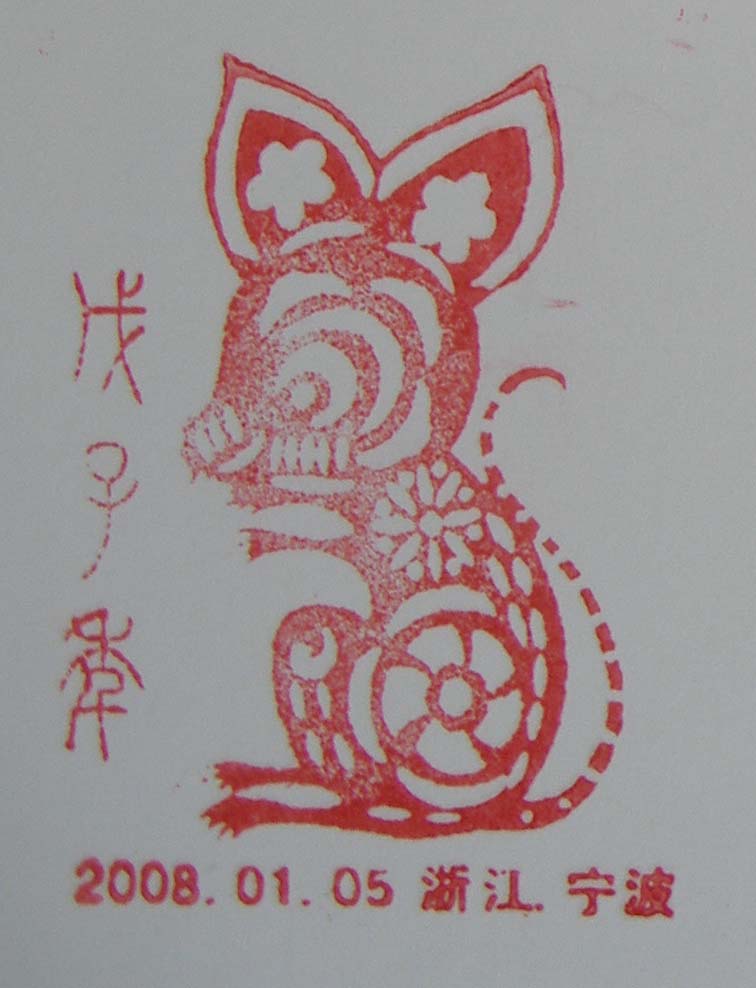 戊子年
2008.01.05 浙江.宁波